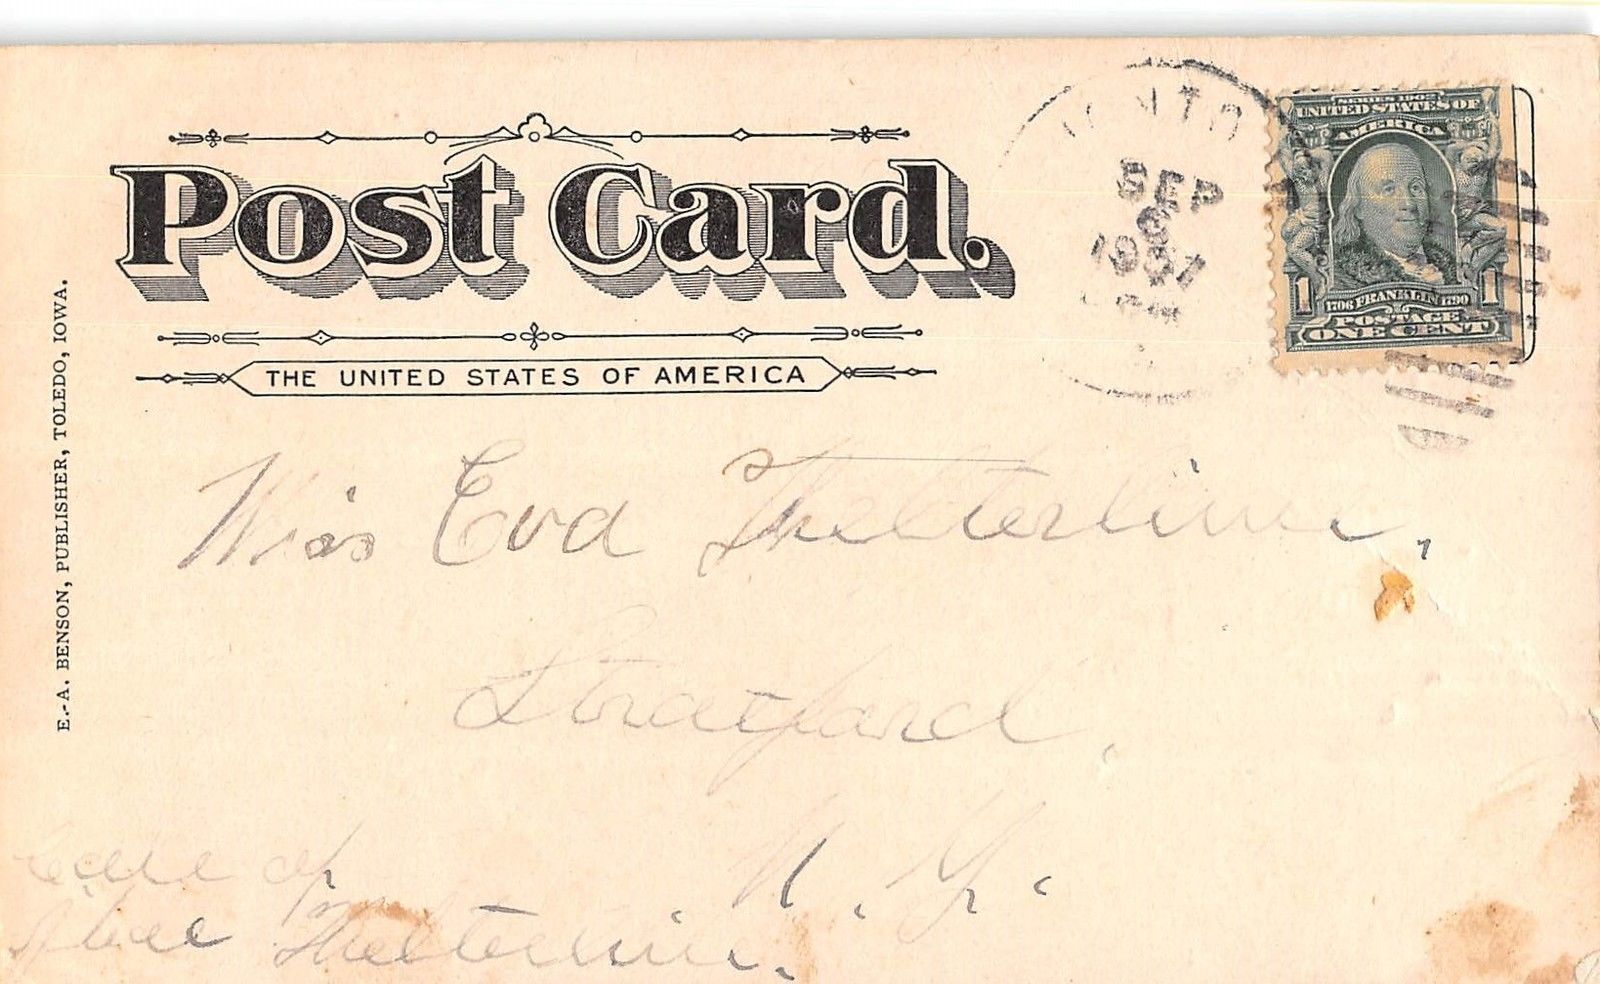 Post Card.
THE UNITED STATES OF AMERICA
E.-A. BENSON, PUBLISHER, TOLEDO, IOWA.
SEP
1907
SERIES 1902
UNITED STATES OF
AMERICA
1 1706 FRANKLIN 1790 1
POSTAGE
ONE CENT
Miss Eva Shelterline,
Stratford,
N. Y.
Care of
Shelterline.